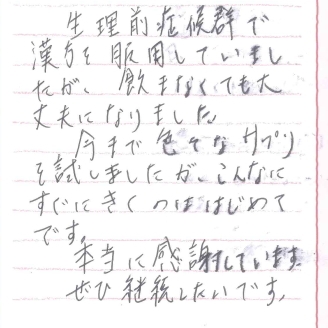 生理前症候群で
漢方を服用していまし
たが、飲まなくても大
丈夫になりました。
今まで色々なサプリ
を試しましたが、こんなに
すぐにきくのははじめて
です。
本当に感謝しています。
ぜひ継続したいです。